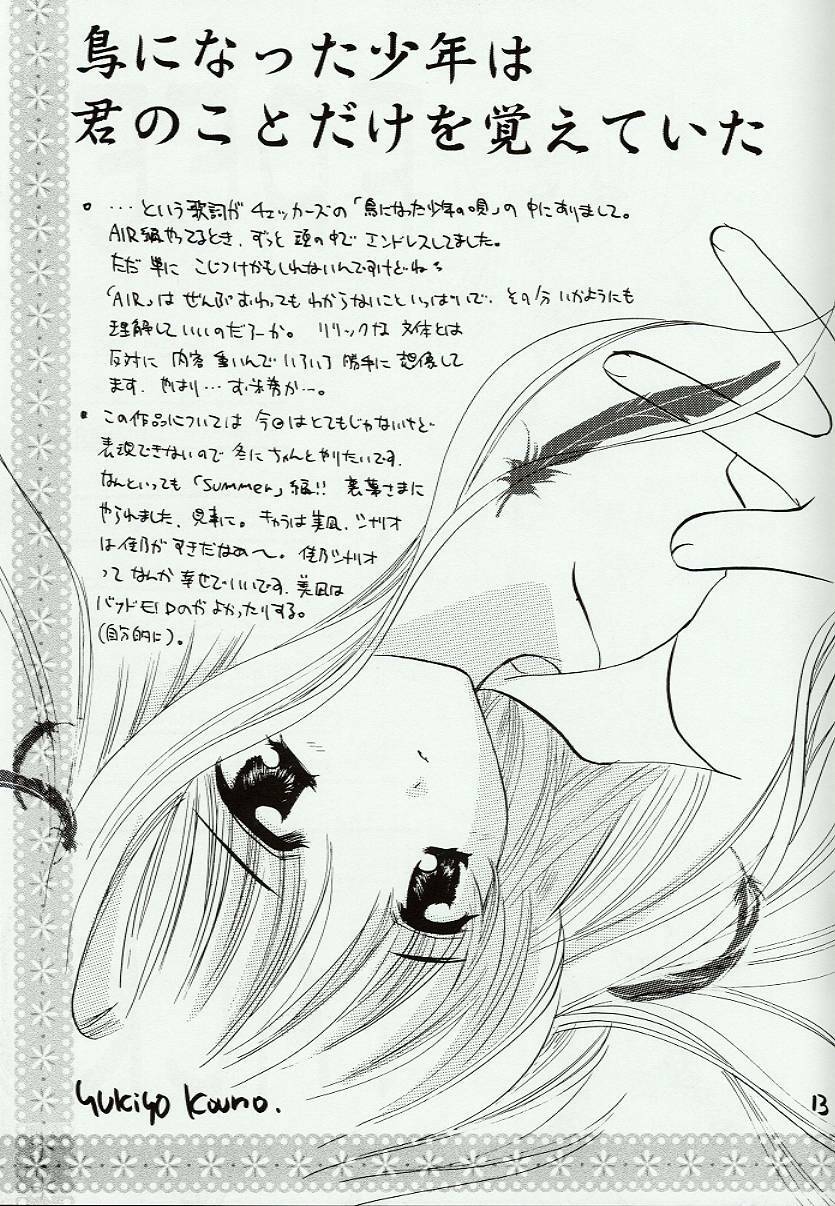 鳥になった少年は
君のことだけを覚えていた
・・・という歌詞が チェッカーズの「鳥になった少年の唄」の中にありまして。
AIR編やってるとき、ずっと頭の中で エンドレスしてました。
ただ単に こじつけかもしれないんですけどね
「AIR」は ぜんぶおわっても わからないこといっぱいで、その分 いかようにも
理解していいのだろーか。 リリックな 文体とは
反対に 内容 重いんで いろいろ 勝手に 想像して
ます。やはり・・・
この作品については 今回はとてもじゃないけど
表現できないので 冬にちゃんとやりたいです。
なんといっても「Summer」編!! 裏葉さまに
やられました、見事に。キャラは美凪、シナリオ
は佳乃がすきだなぁ〜。 佳乃シナリオ
って なんか 幸せでいいです。美凪は
バッドENDのがよかったりする。
(自分的に)。
Yukiyo Kouno.
13